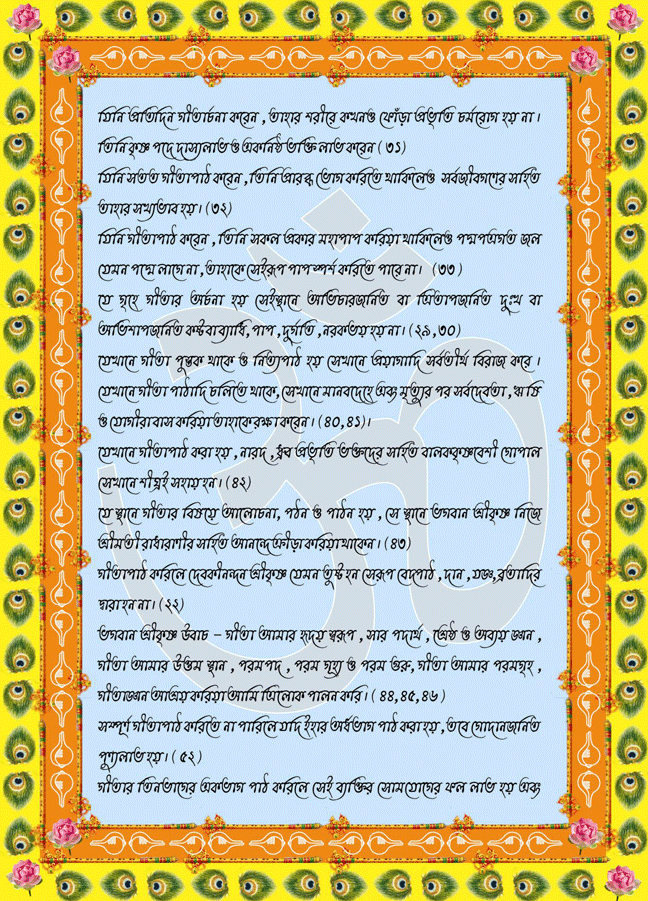 যিনি প্রতিদিন গীতার্চনা করেন , তাহার শরীরে কখনও ফোঁড়া প্রভৃতি চর্মরোগ হয় না ।
তিনি কৃষ্ণ পদে দাস্যলাভ ও একনিষ্ঠ ভক্তি লাভ করেন ( ৩১)
যিনি সতত গীতাপাঠ করেন , তিনি প্রারব্ধ ভোগ করিতে থাকিলেও সর্বজীবগণের সহিত
তাহার সখ্যভাব হয় । ( ৩২)
যিনি গীতাপাঠ করেন , তিনি সকল প্রকার মহাপাপ করিয়া থাকিলেও পদ্মপত্রগত জল
যেমন পদ্মে লাগে না , তাহাকে সেইরূপ পাপ স্পর্শ করিতে পারে না । ( ৩৩ )
যে গৃহে গীতার অর্চনা হয় সেইস্থানে অভিচারজনিত বা ত্রিতাপজনিত দুঃখ বা
অভিশাপজনিত কষ্ট বা ব্যাধি, পাপ , দুর্গতি , নরকভয় হয় না । ( ২৯ , ৩০)
যেখানে গীতা পুস্তক থাকে ও নিত্যপাঠ হয় সেখানে প্রয়াগাদি সর্বতীর্থ বিরাজ করে ।
যেখানে গীতা পাঠাদি চলিতে থাকে, সেখানে মানবদেহে এবং মৃত্যুর পর সর্বদেবতা , ঋষি
ও যোগীরা বাস করিয়া তাহাকে রক্ষা করেন । ( ৪০, ৪১) ।
যেখানে গীতাপাঠ করা হয় , নারদ , ধ্রুব প্রভৃতি ভক্তদের সহিত বালককৃষ্ণবেশী গোপাল
সেখানে শীঘ্রই সহায় হন । ( ৪২)
যে স্থানে গীতার বিষয়ে আলোচনা, পঠন ও পাঠন হয় , সে স্থানে ভগবান শ্রীকৃষ্ণ নিজে
শ্রীমতী রাধারাণীর সহিত আনন্দে ক্রীড়া করিয়া থাকেন । ( ৪৩)
গীতাপাঠ করিলে দেবকীনন্দন শ্রীকৃষ্ণ যেমন তুষ্ট হন সেরূপ বেদপাঠ , দান , যজ্ঞ, ব্রতাদির
দ্বারা হন না । ( ২২)
ভগবান শ্রীকৃষ্ণ উবাচ – গীতা আমার হৃদয় স্বরূপ , সার পদার্থ , শ্রেষ্ঠ ও অব্যয় জ্ঞান ,
গীতা আমার উত্তম স্থান , পরমপদ , পরম গুহ্য ও পরম গুরু, গীতা আমার পরমগৃহ ,
গীতাজ্ঞান আশ্রয় করিয়া আমি ত্রিলোক পালন করি । ( ৪৪, ৪৫, ৪৬ )
সম্পূর্ণ গীতাপাঠ করিতে না পারিলে যদি ইহার অর্ধভাগ পাঠ করা হয় , তবে গোদানজনিত
পুণ্যলাভ হয় । ( ৫২ )
গীতার তিনভাগের একভাগ পাঠ করিলে সেই ব্যক্তির সোমযোগের ফল লাভ হয় এবং